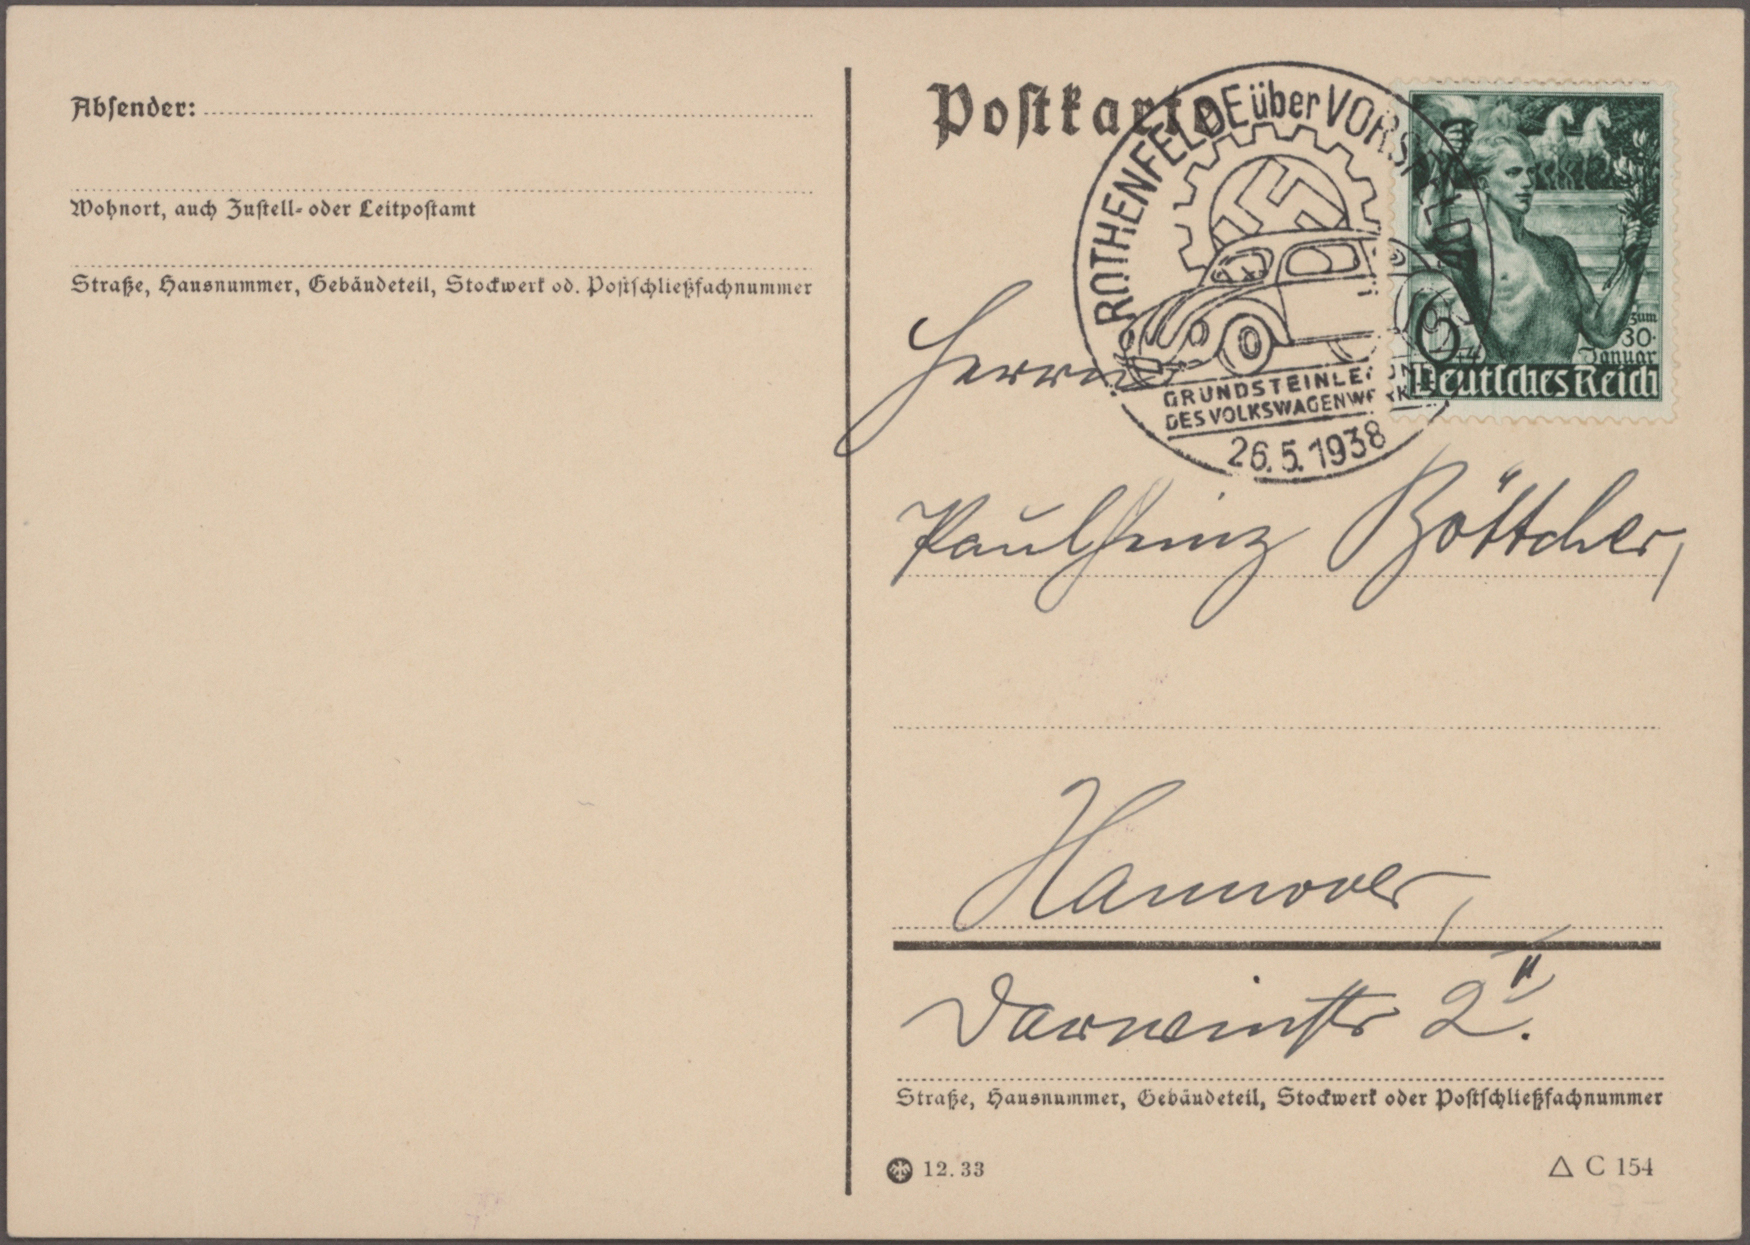 Absender:
Wohnort, auch Zustell- oder Leitpostamt
Straße, Hausnummer, Gebäudeteil, Stockwerk od. Postschließfachnummer
Postkarte
ROTHENFELDE über VORSFELDE
GRUNDSTEINLEGUNG
DES VOLKSWAGENWERKES
26.5.1938
6+4
zum
30.
Januar
Deutsches Reich
Herrn
Paul Heinz Böttcher,
Hannover,
Darwinstr 2 II.
Straße, Hausnummer, Gebäudeteil, Stockwerk oder Postschließfachnummer
12. 33
△ C 154